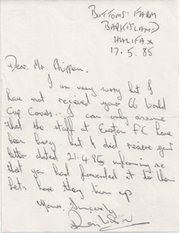 BUTTOMS FARM
BARKISLAND
HALIFAX
17.5.85
Dear Mr
I am very sorry but I
have not received your 66 World
Cup Covers. I can only assume
that the staff at Everton FC have
been busy but I did receive your
letter dated 21.4.85 informing me
that you had forwarded it to them
Let's hope they turn up
Yours Sincerely